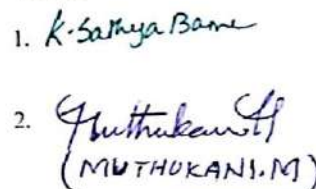 1. K. Sathya Bama
2. Muthukani M
(MUTHUKANI.M)